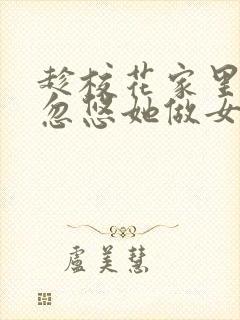 趁校花家里
忽悠她做女
盧美慧